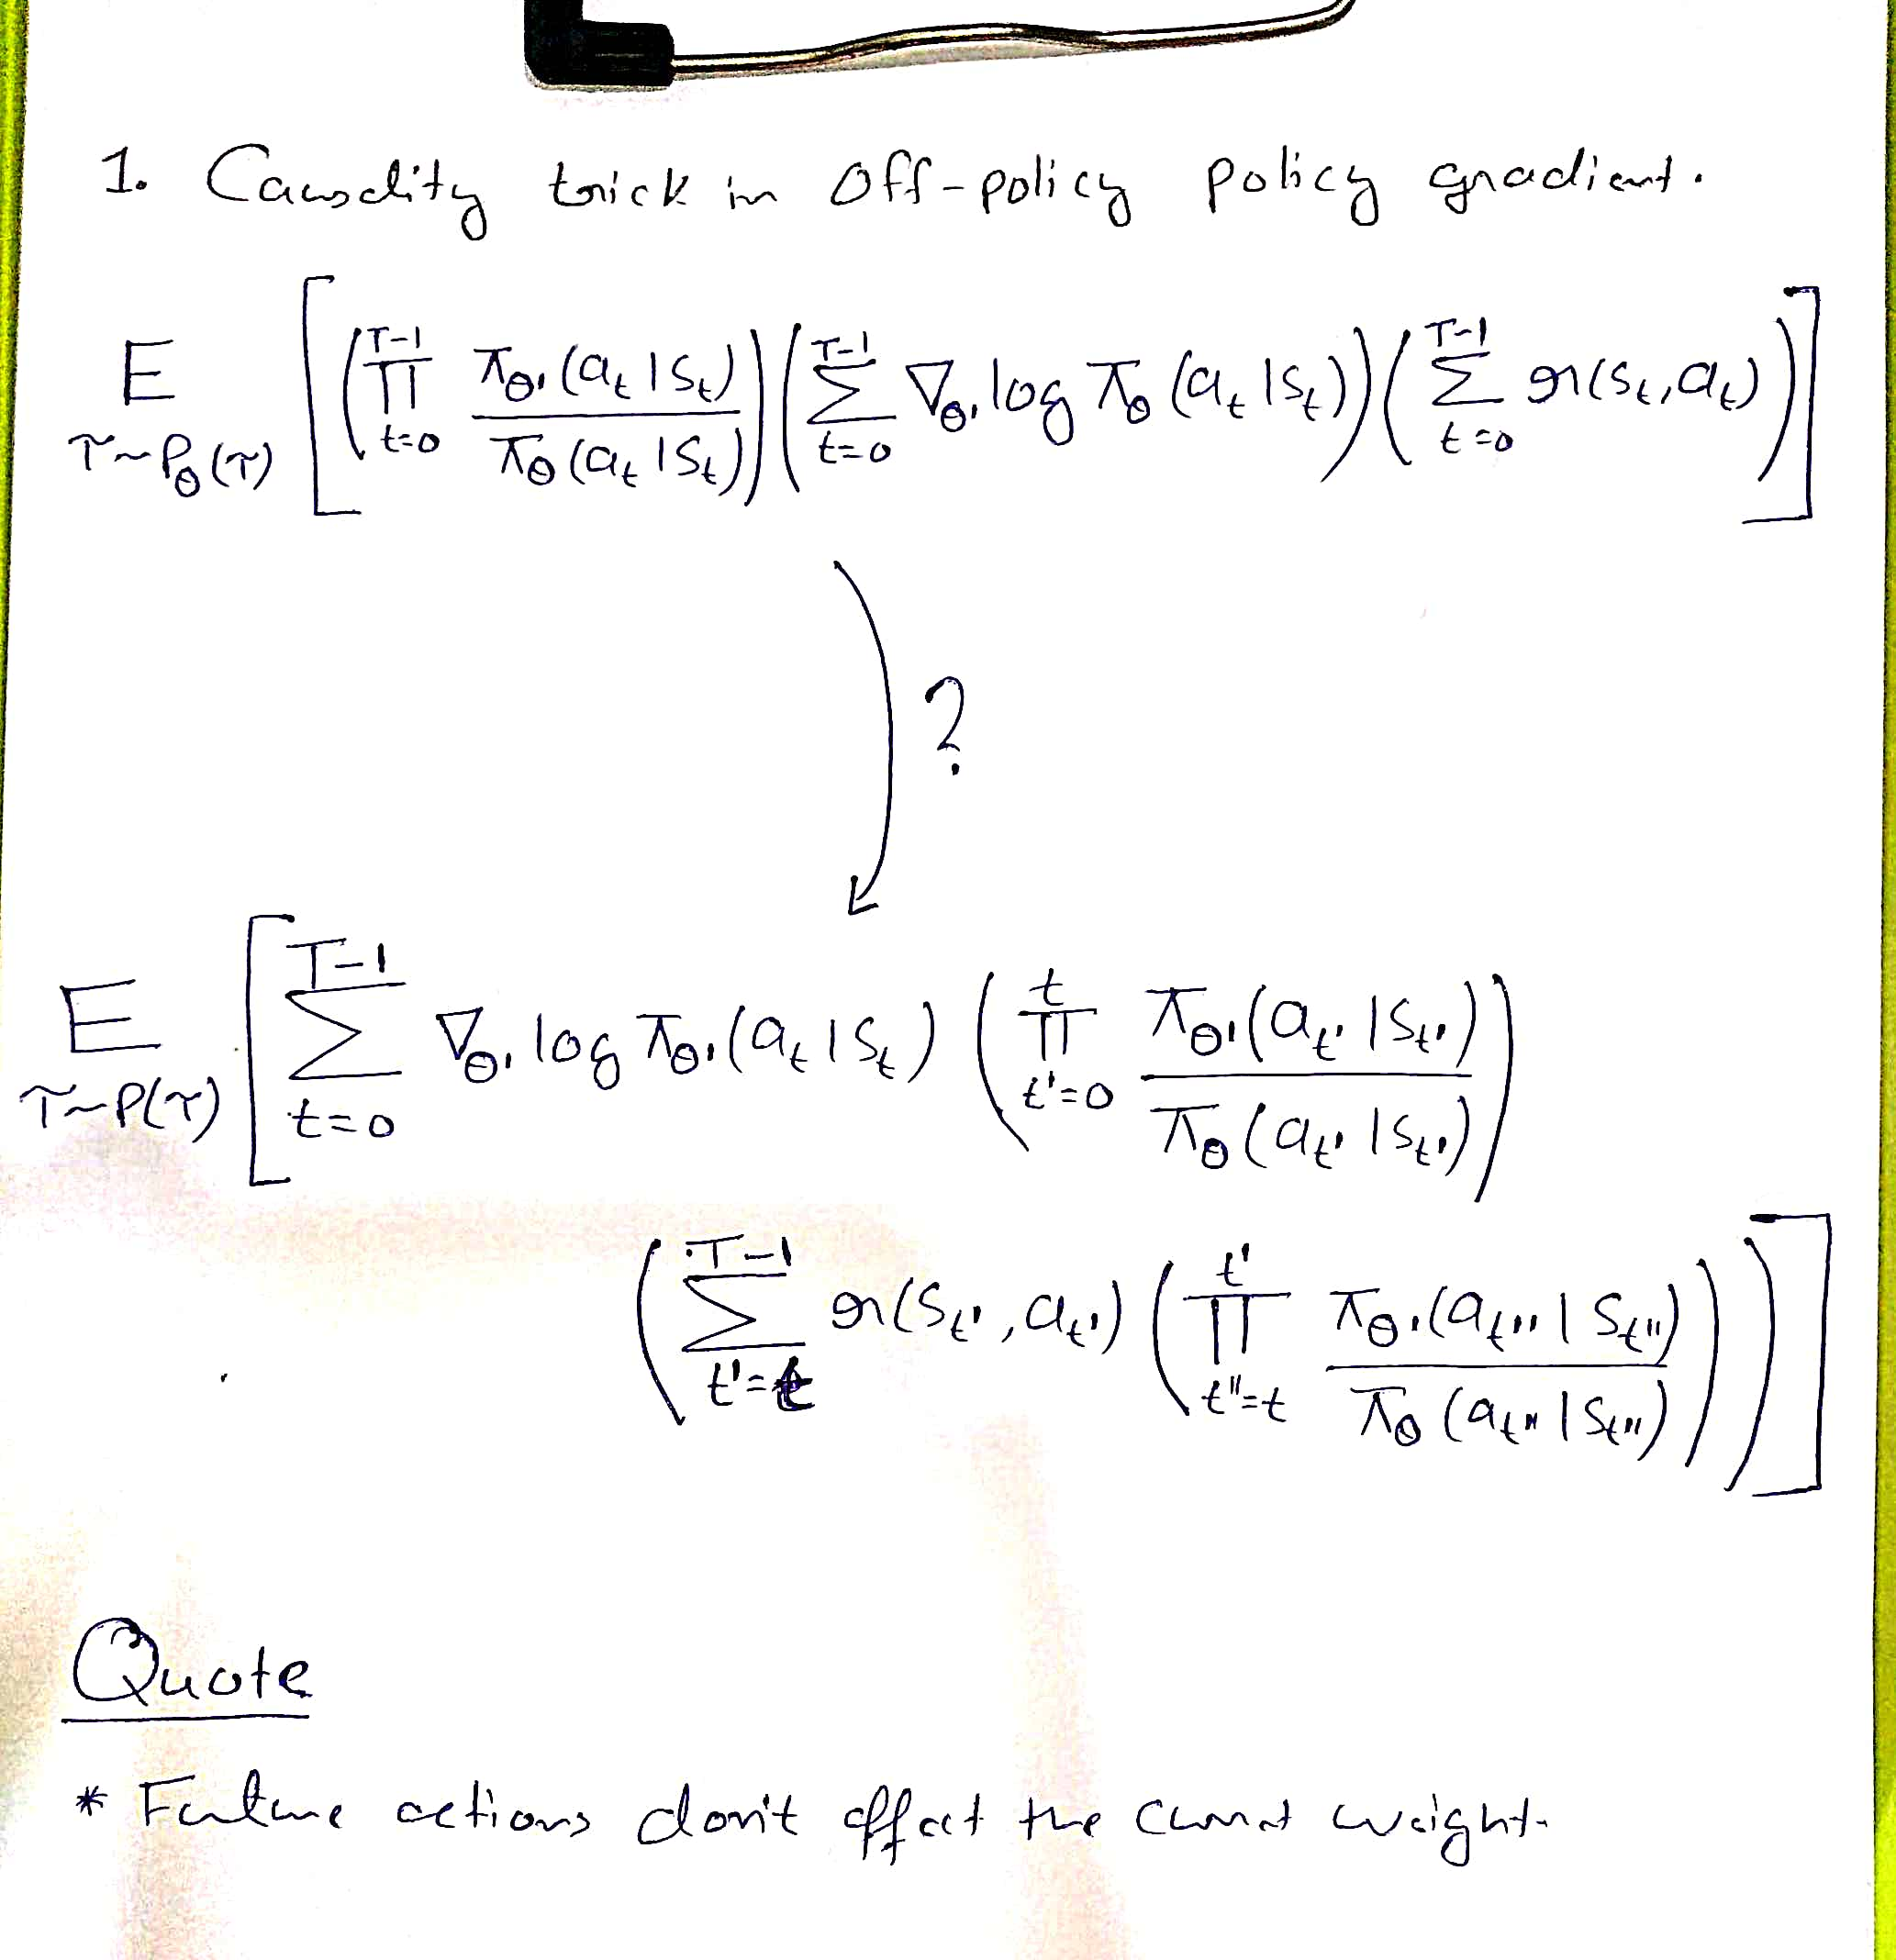 1. Causality trick in off-policy policy gradient.
E_{τ~P_θ(τ)} [ ( ∏_{t=0}^{T-1} π_θ'(a_t|s_t) / π_θ(a_t|s_t) ) ( ∑_{t=0}^{T-1} ∇_θ' log π_θ(a_t|s_t) ) ( ∑_{t=0}^{T-1} r(s_t,a_t) ) ]
?
E_{τ~P(τ)} [ ∑_{t=0}^{T-1} ∇_θ' log π_θ'(a_t|s_t) ( ∏_{t'=0}^{t} π_θ'(a_t'|s_t') / π_θ(a_t'|s_t') )
( ∑_{t'=t}^{T-1} r(s_t',a_t') ( ∏_{t''=t}^{t'} π_θ'(a_t''|s_t'') / π_θ(a_t''|s_t'') ) ) ]
Quote
* Future actions don't affect the current weight.